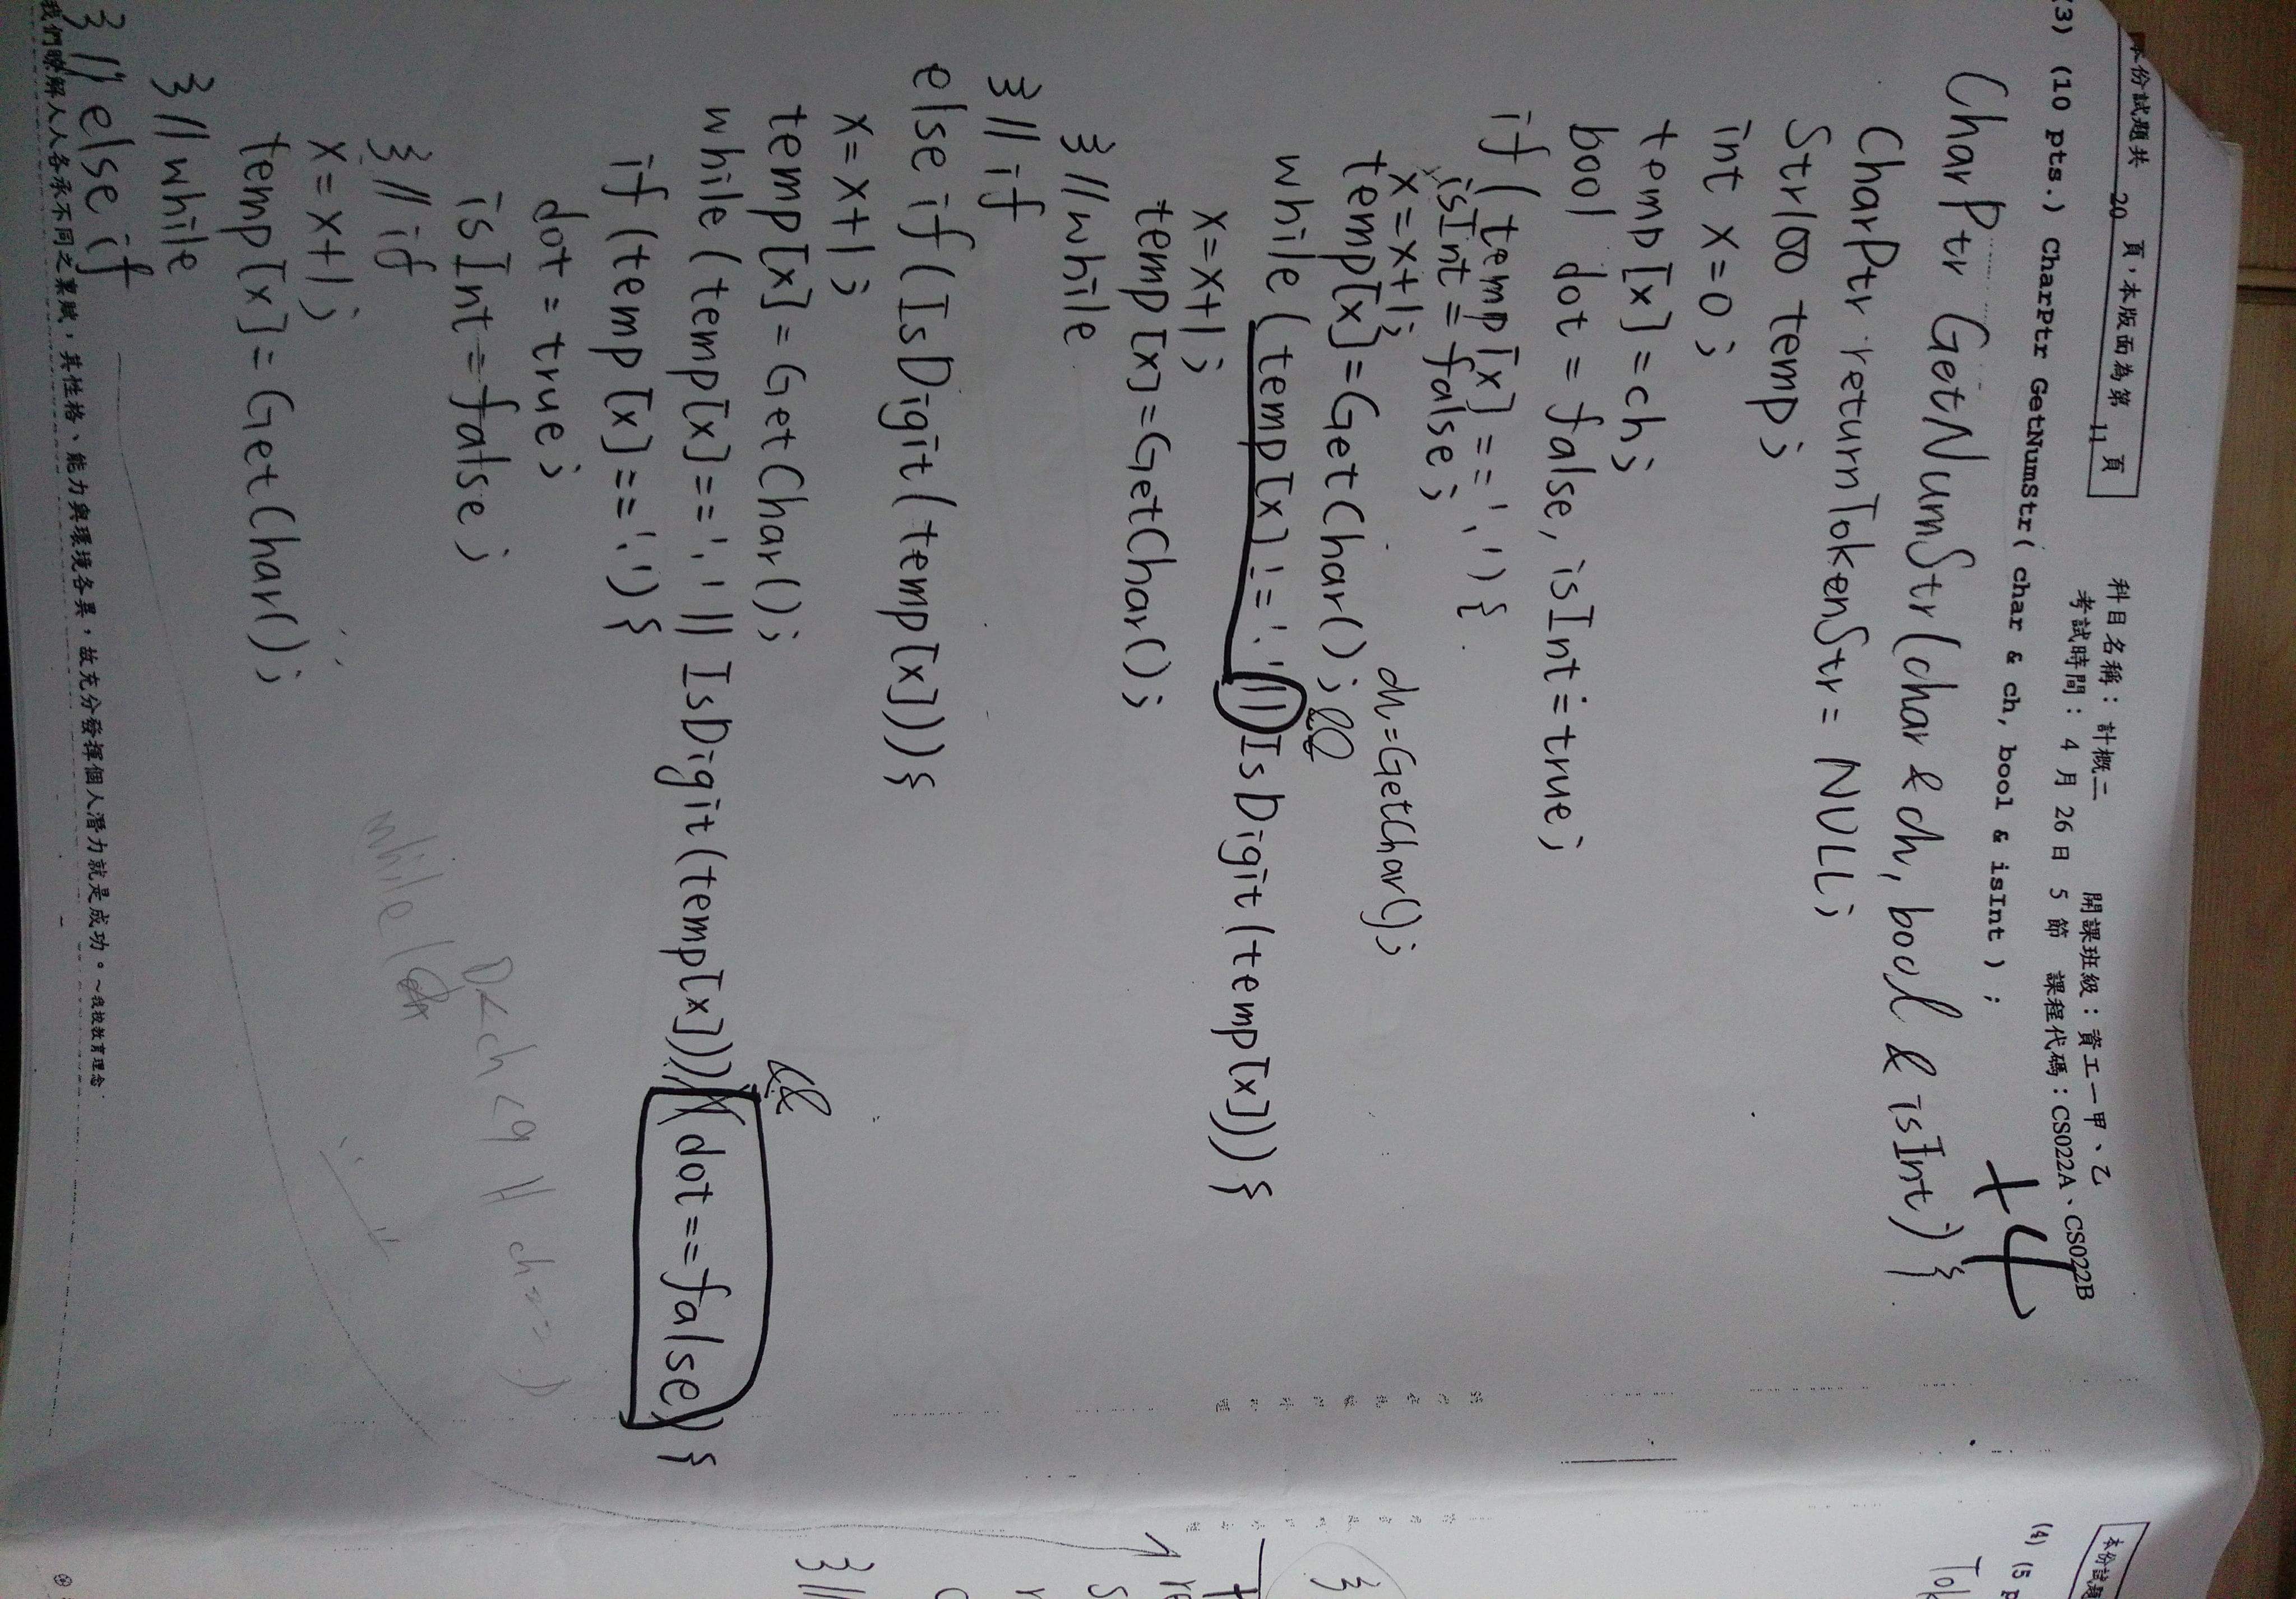 本份試題共 20 頁，本版面為第 11 頁
科目名稱：計概二 開課班級：資工一甲、乙
考試時間：4 月 26 日 5 節 課程代碼：CS022A、CS022B
(3) (10 pts.) CharPtr GetNumStr( char & ch, bool & isInt ) ;
+4
CharPtr GetNumStr(char & ch, bool & isInt) {
CharPtr returnTokenStr = NULL;
Str100 temp;
int x=0;
temp[x]=ch;
bool dot = false, isInt=true;
if(temp[x]=='.'){
isInt = false;
x=x+1;
ch=GetChar();
temp[x]=GetChar();
&&
while (temp[x]!='.'||IsDigit(temp[x])){
x=x+1;
temp[x]=GetChar();
}//while
}//if
else if(IsDigit(temp[x])){
x=x+1;
temp[x]=GetChar();
&&
while (temp[x]=='.'|| IsDigit(temp[x]))(dot==false){
if(temp[x]=='.'){
dot = true;
isInt=false;
}//if
0<ch<9 || ch==
while (ch
x=x+1;
temp[x]=GetChar();
}//while
}//else if
我們瞭解人人各承不同之稟賦，其性格、能力與環境各異，故充分發揮個人潛力就是成功。~我校教育理念
本份試題
(4) (5 p
Tok